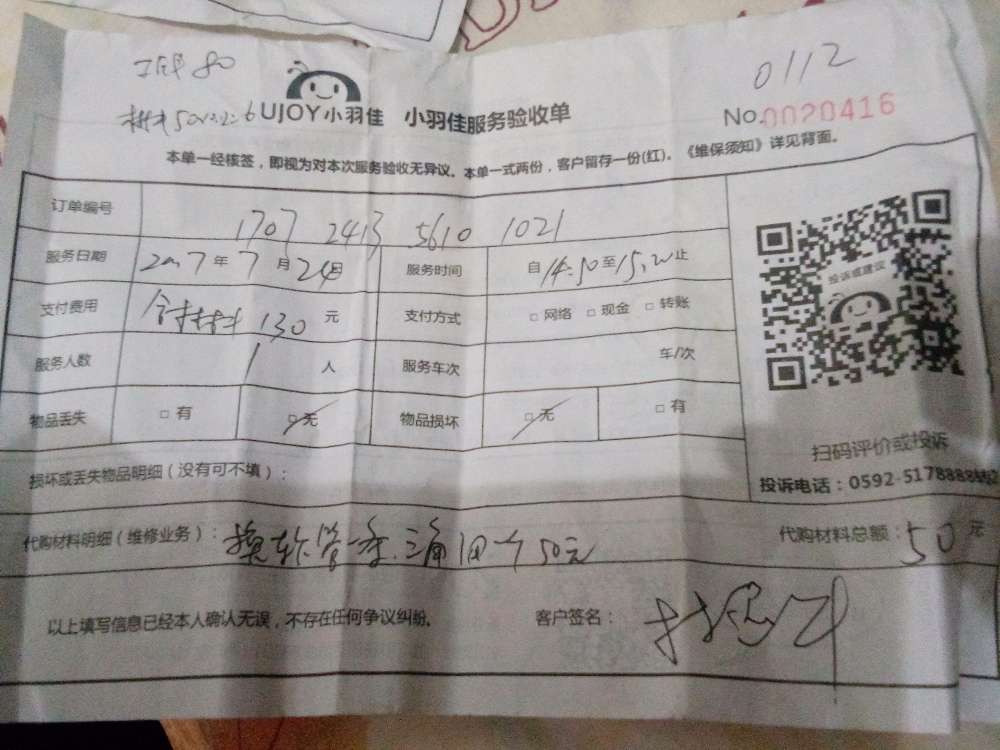 工程 80
0112
UJOY小羽佳 小羽佳服务验收单
No.0020416
本单一经核签，即视为对本次服务验收无异议。本单一式两份，客户留存一份(红)。《维保须知》详见背面。
订单编号 1707 2413 5610 1021
服务日期 2017年7月24日 服务时间 自14:50至15:20止
支付费用 含材料130元 支付方式 □网络 □现金 □转账
服务人数 1人 服务车次 车/次
物品丢失 □有 □无 物品损坏 □无 □有
投诉或建议
扫码评价或投诉
投诉电话：0592-5178888转2
损坏或丢失物品明细（没有可不填）：
代购材料明细（维修业务）：换软管一条.三角阀一个50元 代购材料总额：50元
以上填写信息已经本人确认无误，不存在任何争议纠纷。 客户签名：